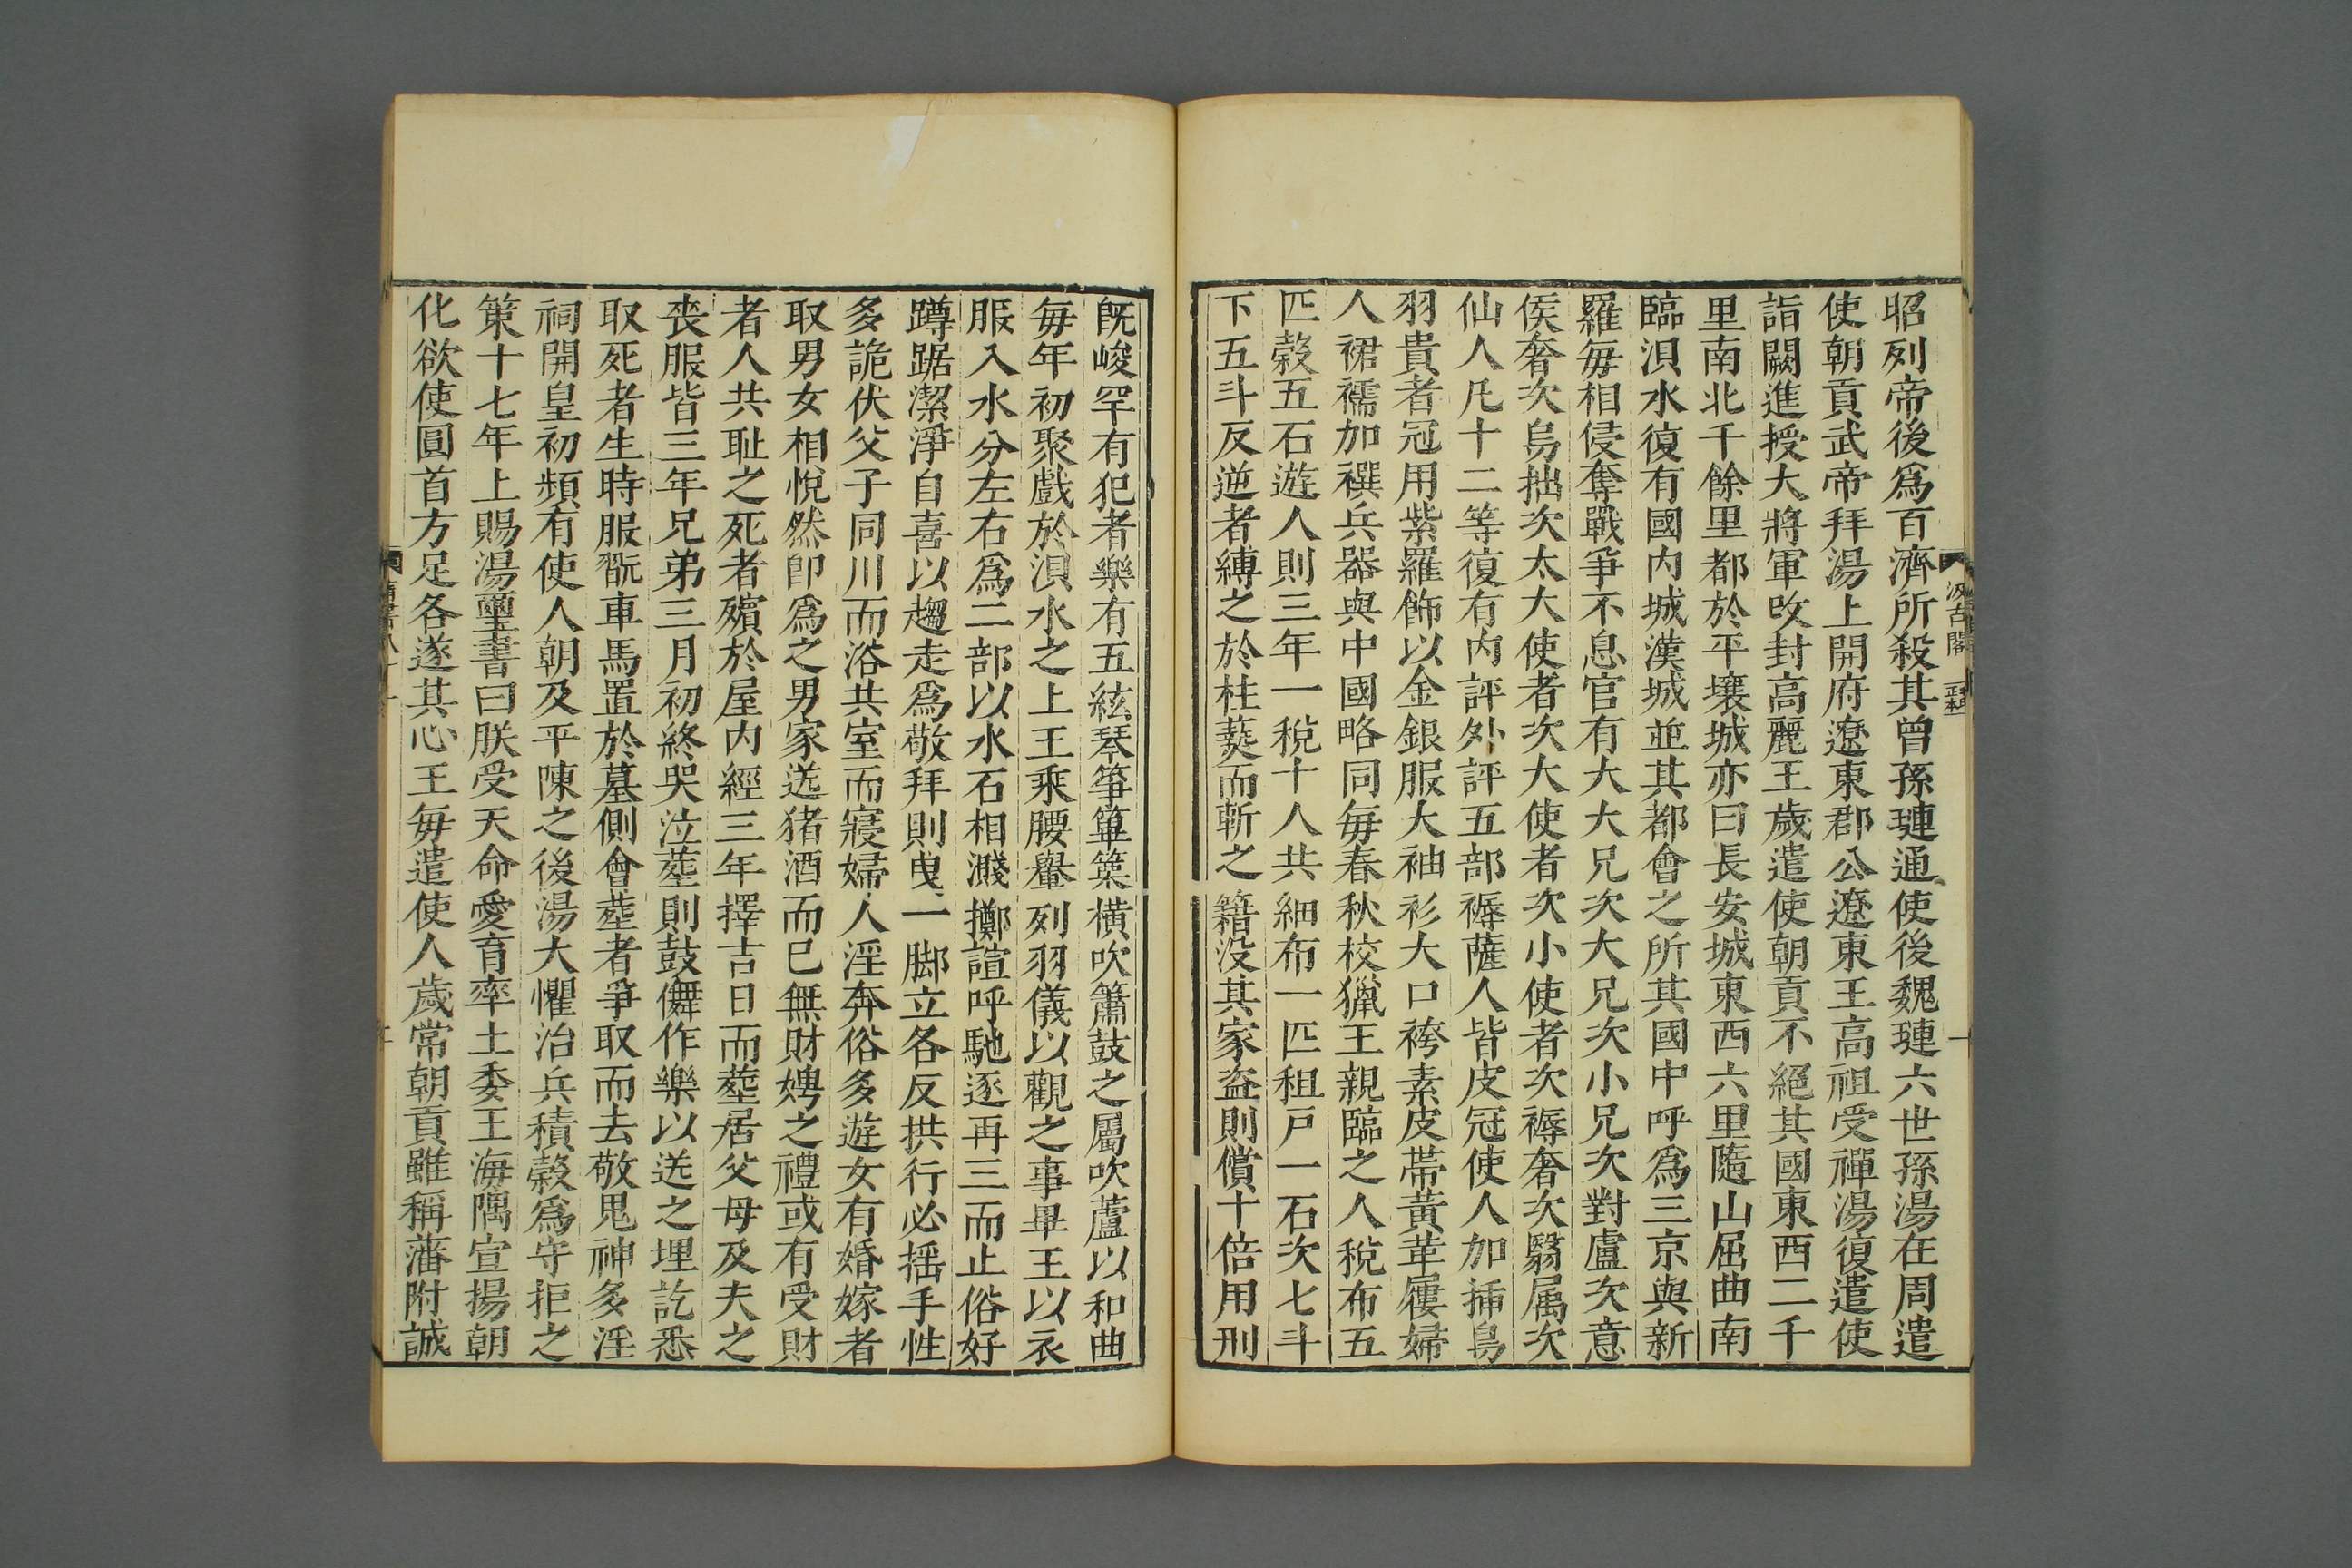 昭列帝後爲百濟所殺其曾孫璉通使後魏璉六世孫湯在周遣
使朝貢武帝拜湯上開府遼東郡公遼東王高祖受禪湯復遣使
詣闕進授大將軍改封高麗王歲遣使朝貢不絕其國東西二千
里南北千餘里都於平壤城亦曰長安城東西六里隨山屈曲南
臨浿水復有國内城漢城並其都會之所其國中呼爲三京與新
羅每相侵奪戰爭不息官有大大兄次大兄次小兄次對盧次意
侯奢次烏拙次太大使者次大使者次小使者次褥奢次翳属次
仙人凡十二等復有内評外評五部褥薩人皆皮冠使人加插鳥
羽貴者冠用紫羅飾以金銀服大袖衫大口袴素皮帶黃革屨婦
人裙襦加襈兵器與中國略同每春秋校獵王親臨之人稅布五
匹穀五石遊人則三年一稅十人共細布一匹租戸一石次七斗
下五斗反逆者縛之於柱爇而斬之籍没其家盜則償十倍用刑
既峻罕有犯者樂有五絃琴箏篳篥橫吹簫鼓之屬吹蘆以和曲
每年初聚戲於浿水之上王乘腰轝列羽儀以觀之事畢王以衣
服入水分左右爲二部以水石相濺擲諠呼馳逐再三而止俗好
蹲踞潔淨自喜以趨走爲敬拜則曳一脚立各反拱行必搖手性
多詭伏父子同川而浴共室而寢婦人淫奔俗多遊女有婚嫁者
取男女相悅然卽爲之男家送猪酒而已無財娉之禮或有受財
者人共耻之死者殯於屋内經三年擇吉日而葬居父母及夫之
喪服皆三年兄弟三月初終哭泣葬則鼓儛作樂以送之埋訖悉
取死者生時服翫車馬置於墓側會葬者爭取而去敬鬼神多淫
祠開皇初頻有使人朝及平陳之後湯大懼治兵積穀爲守拒之
策十七年上賜湯璽書曰朕受天命愛育率土委王海隅宣揚朝
化欲使圓首方足各遂其心王每遣使人歲常朝貢雖稱藩附誠
汲古閣